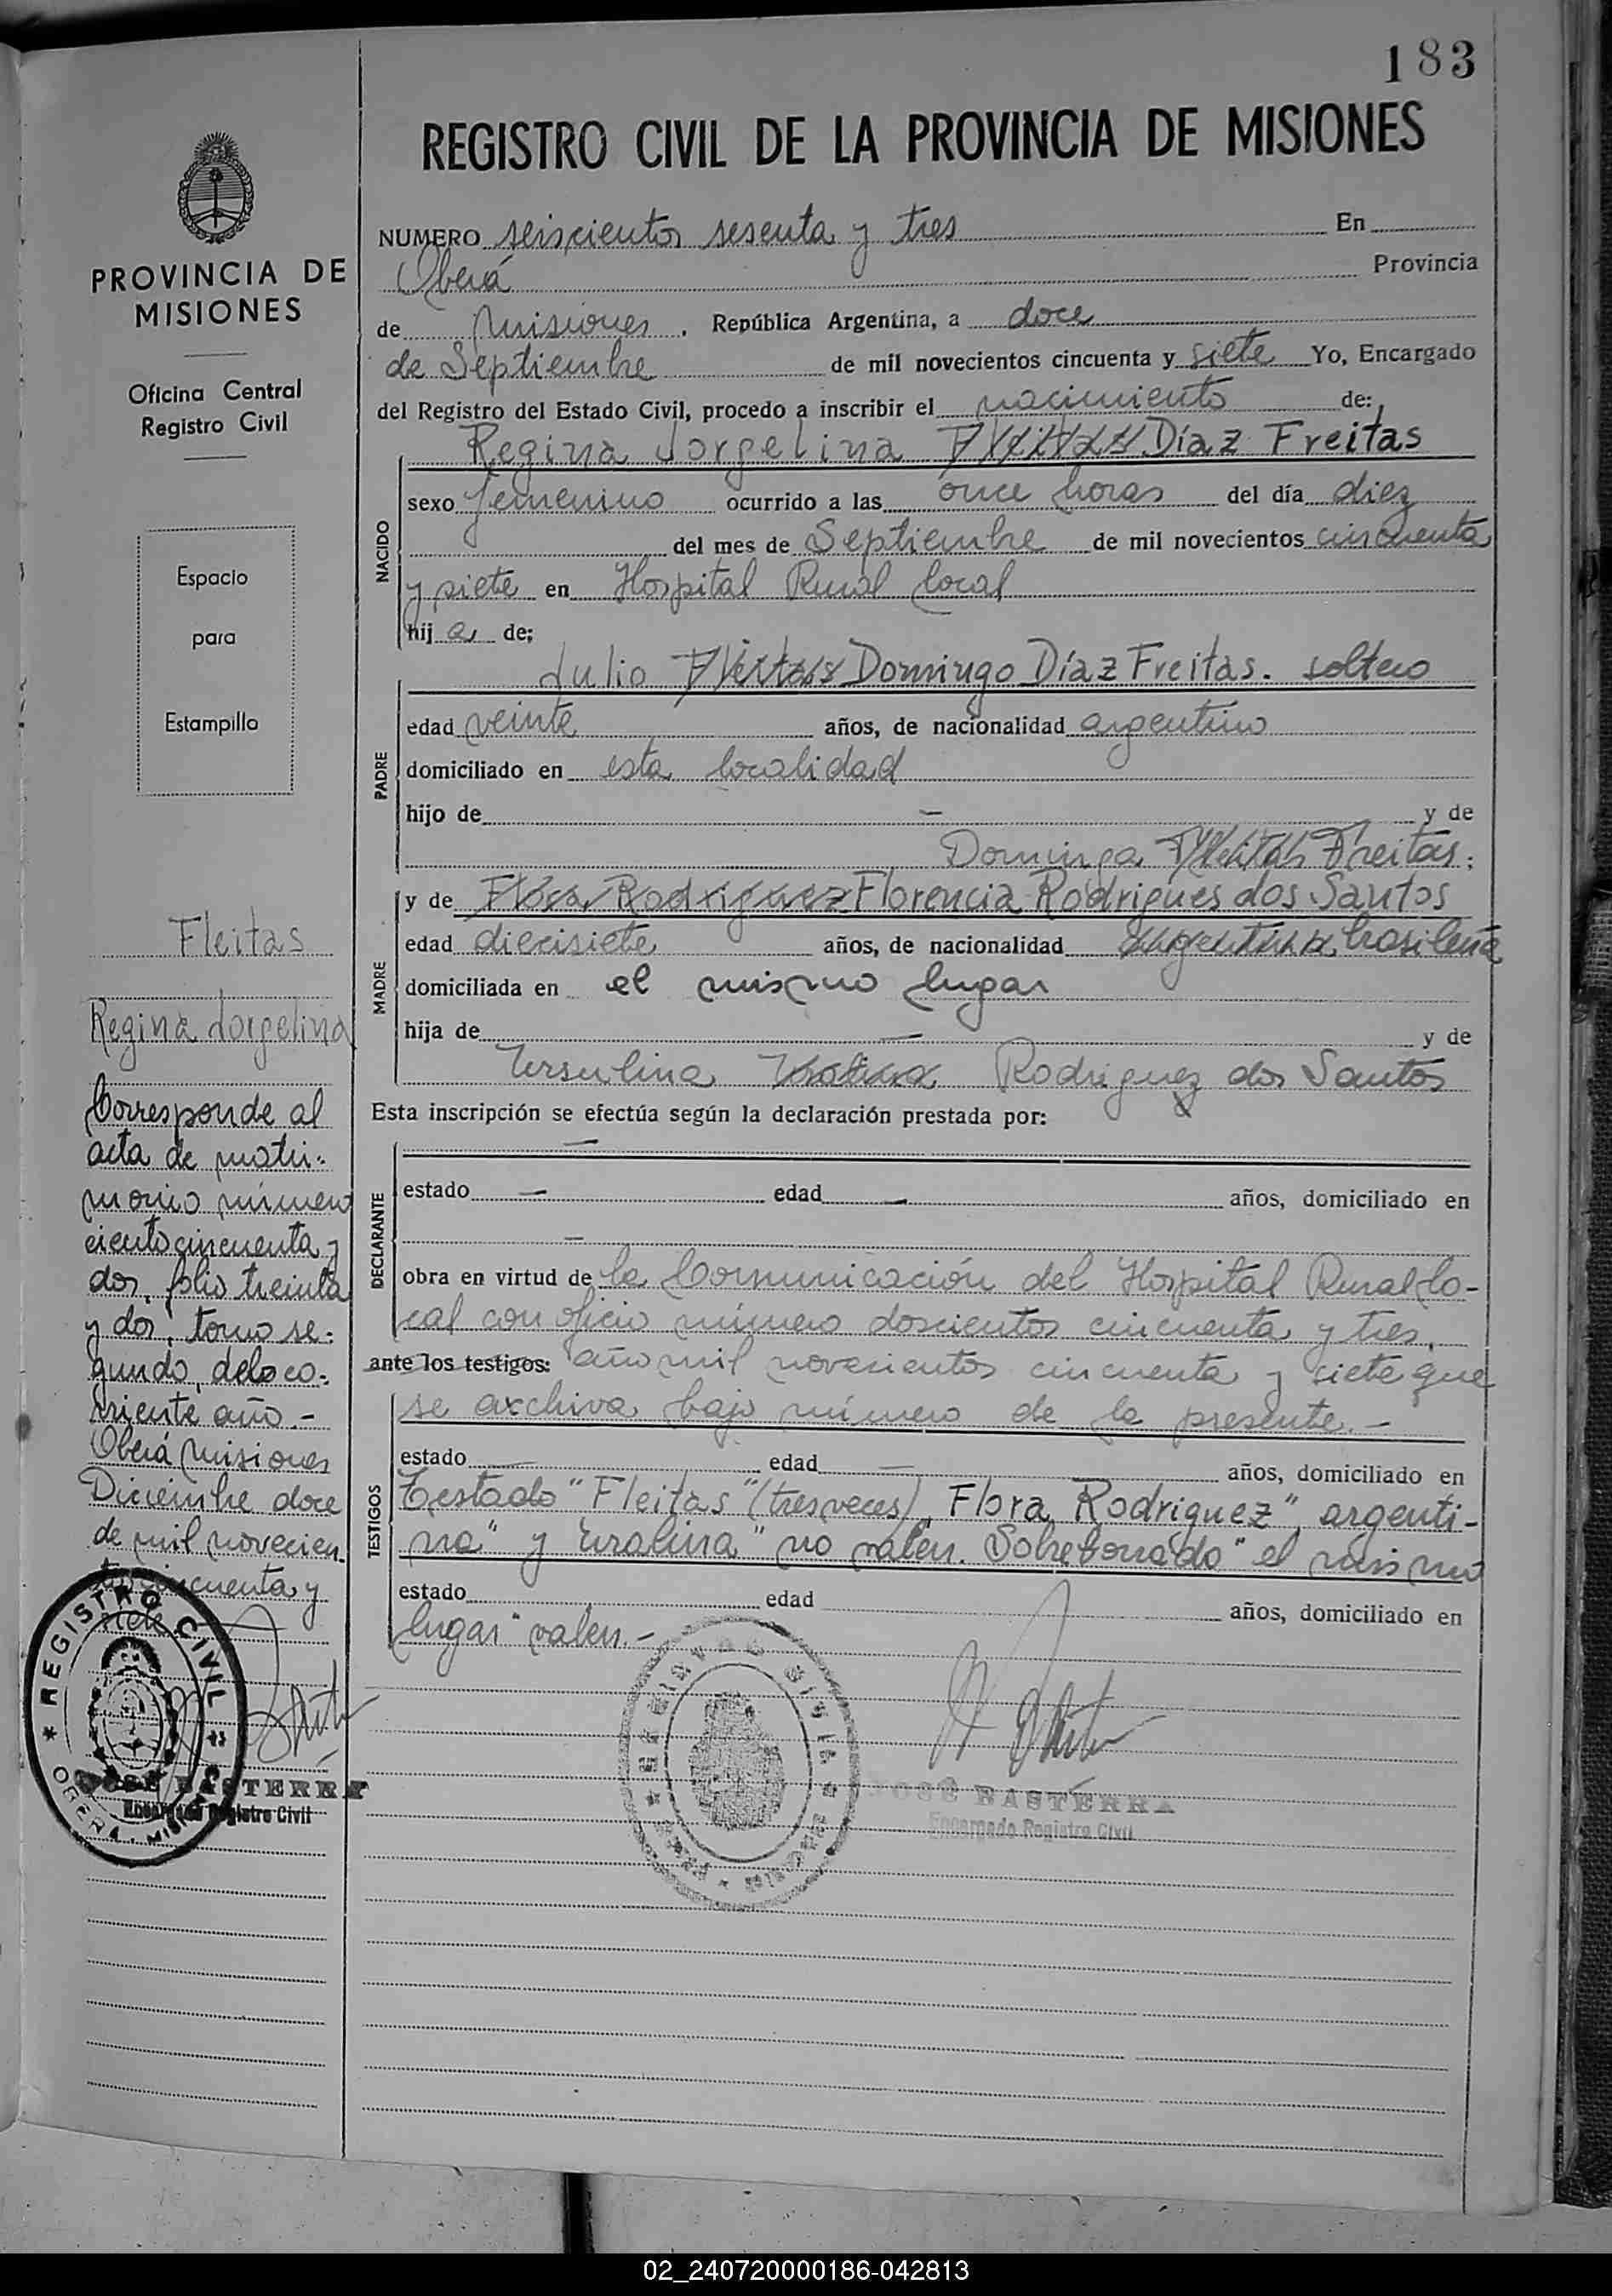 183
REGISTRO CIVIL DE LA PROVINCIA DE MISIONES
NUMERO seiscientos sesenta y tres En
Oberá Provincia
de Misiones. República Argentina, a doce
de Septiembre de mil novecientos cincuenta y siete Yo, Encargado
del Registro del Estado Civil, procedo a inscribir el nacimiento de:
Regina Jorgelina Fleitas Díaz Freitas
NACIDO
sexo femenino ocurrido a las once horas del día diez
del mes de Septiembre de mil novecientos cincuenta
y siete en Hospital Rural local
hija de:
Julio Fleitas Domingo Díaz Freitas. soltero
PADRE
edad veinte años, de nacionalidad argentino
domiciliado en esta localidad
hijo de — y de
Dominga Fleitas Freitas;
MADRE
y de Flora Rodriguez Florencia Rodrigues dos Santos
edad diecisiete años, de nacionalidad argentina brasileña
domiciliada en el mismo lugar
hija de — y de
Ursulina Uralina Rodriguez dos Santos
Esta inscripción se efectúa según la declaración prestada por:
—
DECLARANTE
estado — edad — años, domiciliado en
—
obra en virtud de la Comunicación del Hospital Rural lo-
cal con oficio número doscientos cincuenta y tres,
ante los testigos: año mil novecientos cincuenta y siete que
se archiva bajo número de la presente.-
TESTIGOS
estado — edad — años, domiciliado en
Testado "Fleitas" (tres veces), Flora Rodriguez", argenti-
na" y Uralina" no valen. Sobreborrado "el mismo
estado edad años, domiciliado en
lugar" valen.-
REGISTRO CIVIL
JOSÉ BASTERRA
Encargado Registro Civil
PROVINCIA DE
MISIONES
Oficina Central
Registro Civil
Espacio
para
Estampilla
Fleitas
Regina Jorgelina
Corresponde al
acta de matri-
monio número
ciento cincuenta y
dos, folio treinta
y dos, tomo se-
gundo, del co-
rriente año.-
Oberá Misiones
Diciembre doce
de mil novecien
tos cincuenta y
siete
REGISTRO CIVIL
OBERA - MISIONES
JOSÉ BASTERRA
Encargado Registro Civil
02_240720000186-042813